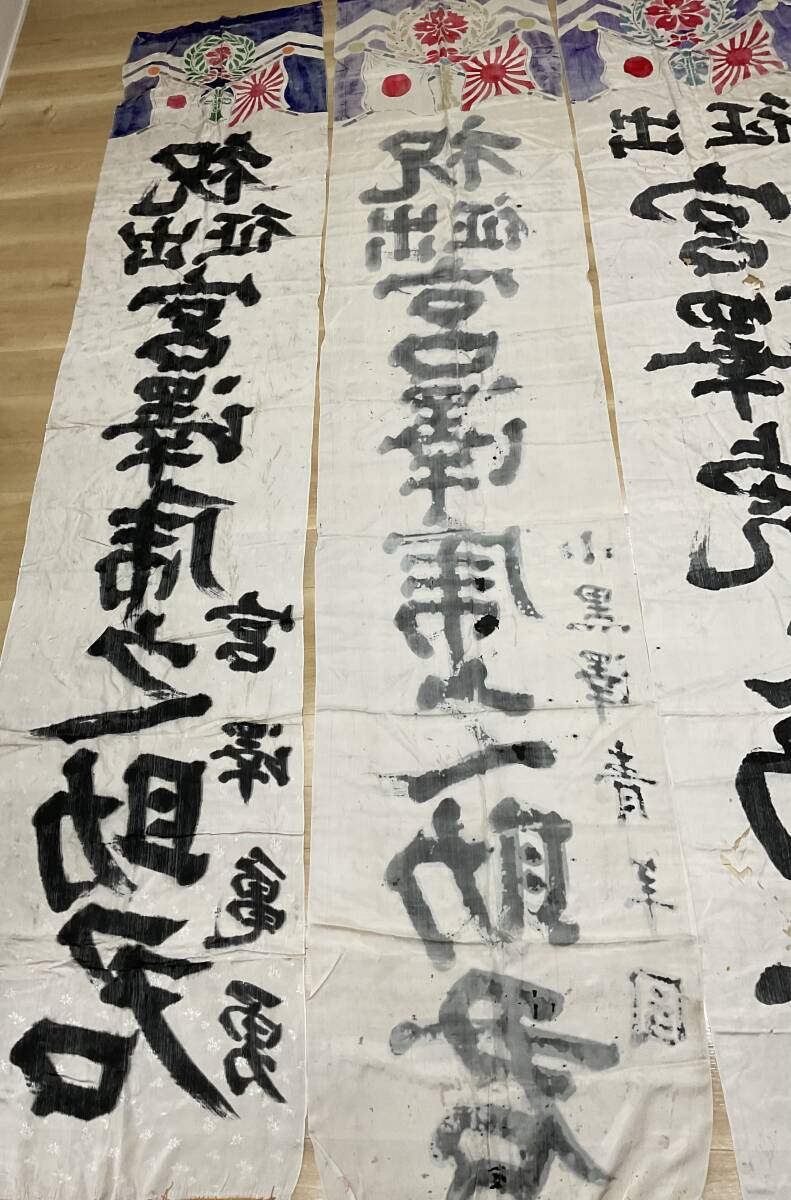 祝
出征
宮澤庸之助君
宮澤亀
祝
出征
宮澤庸之助君
小黒澤青年團
出征
宮澤